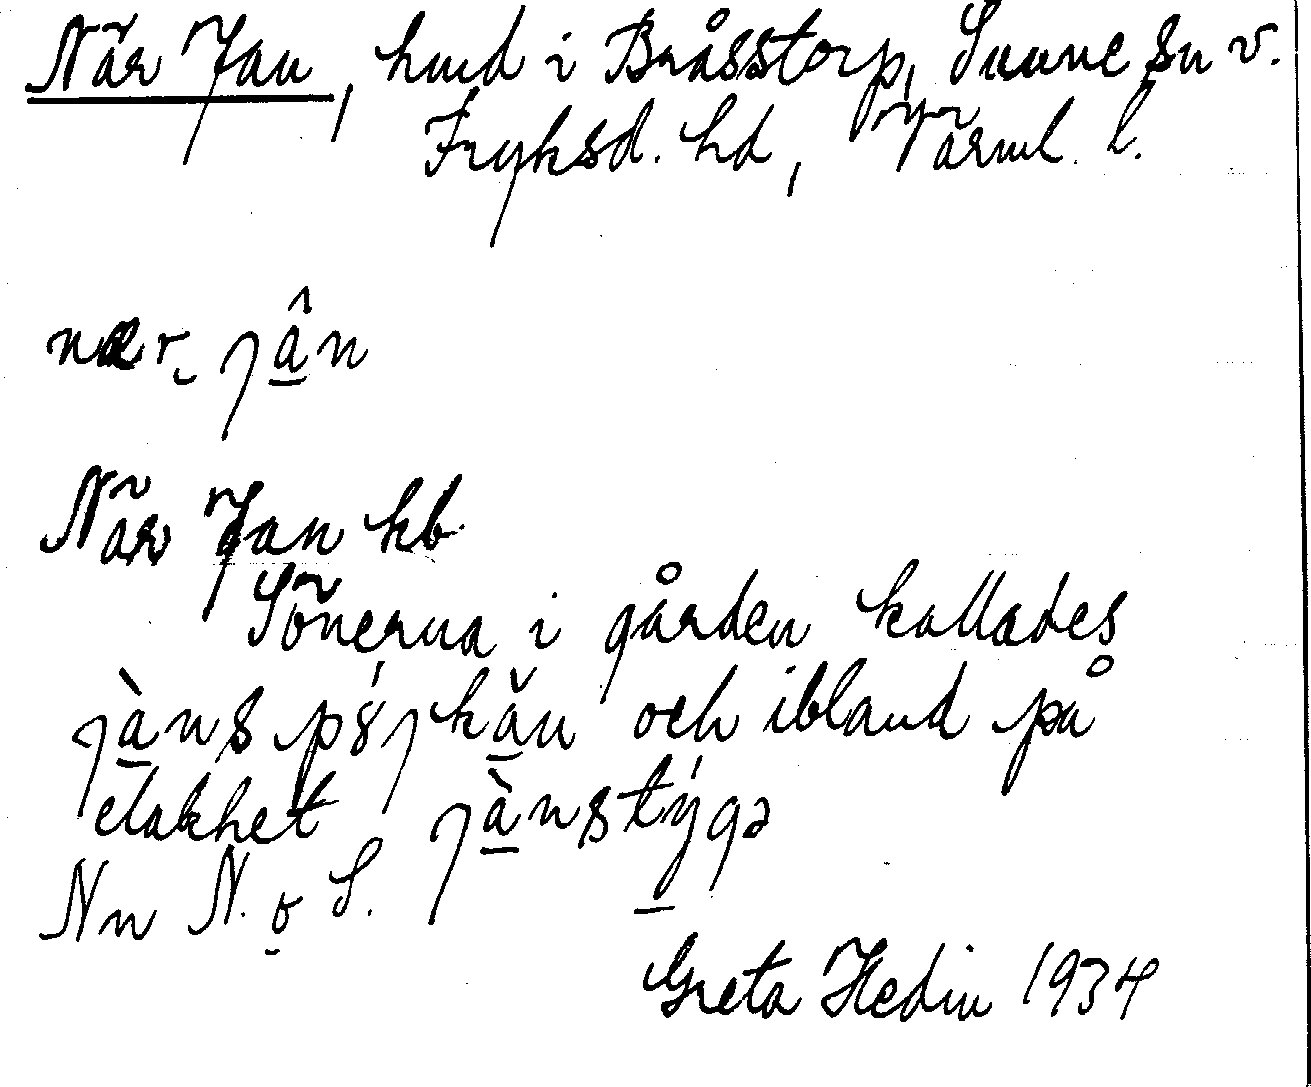 När Jan, hmd i Bråsstorp, Sunne sn v.
Fryksd. hd, Värml. l.
nær jân
När Jan kb.
Sönerna i gården kallades
jàns pójkăn och ibland på
elakhet jànstýgə
Nn N. o S.
Greta Hedin 1934